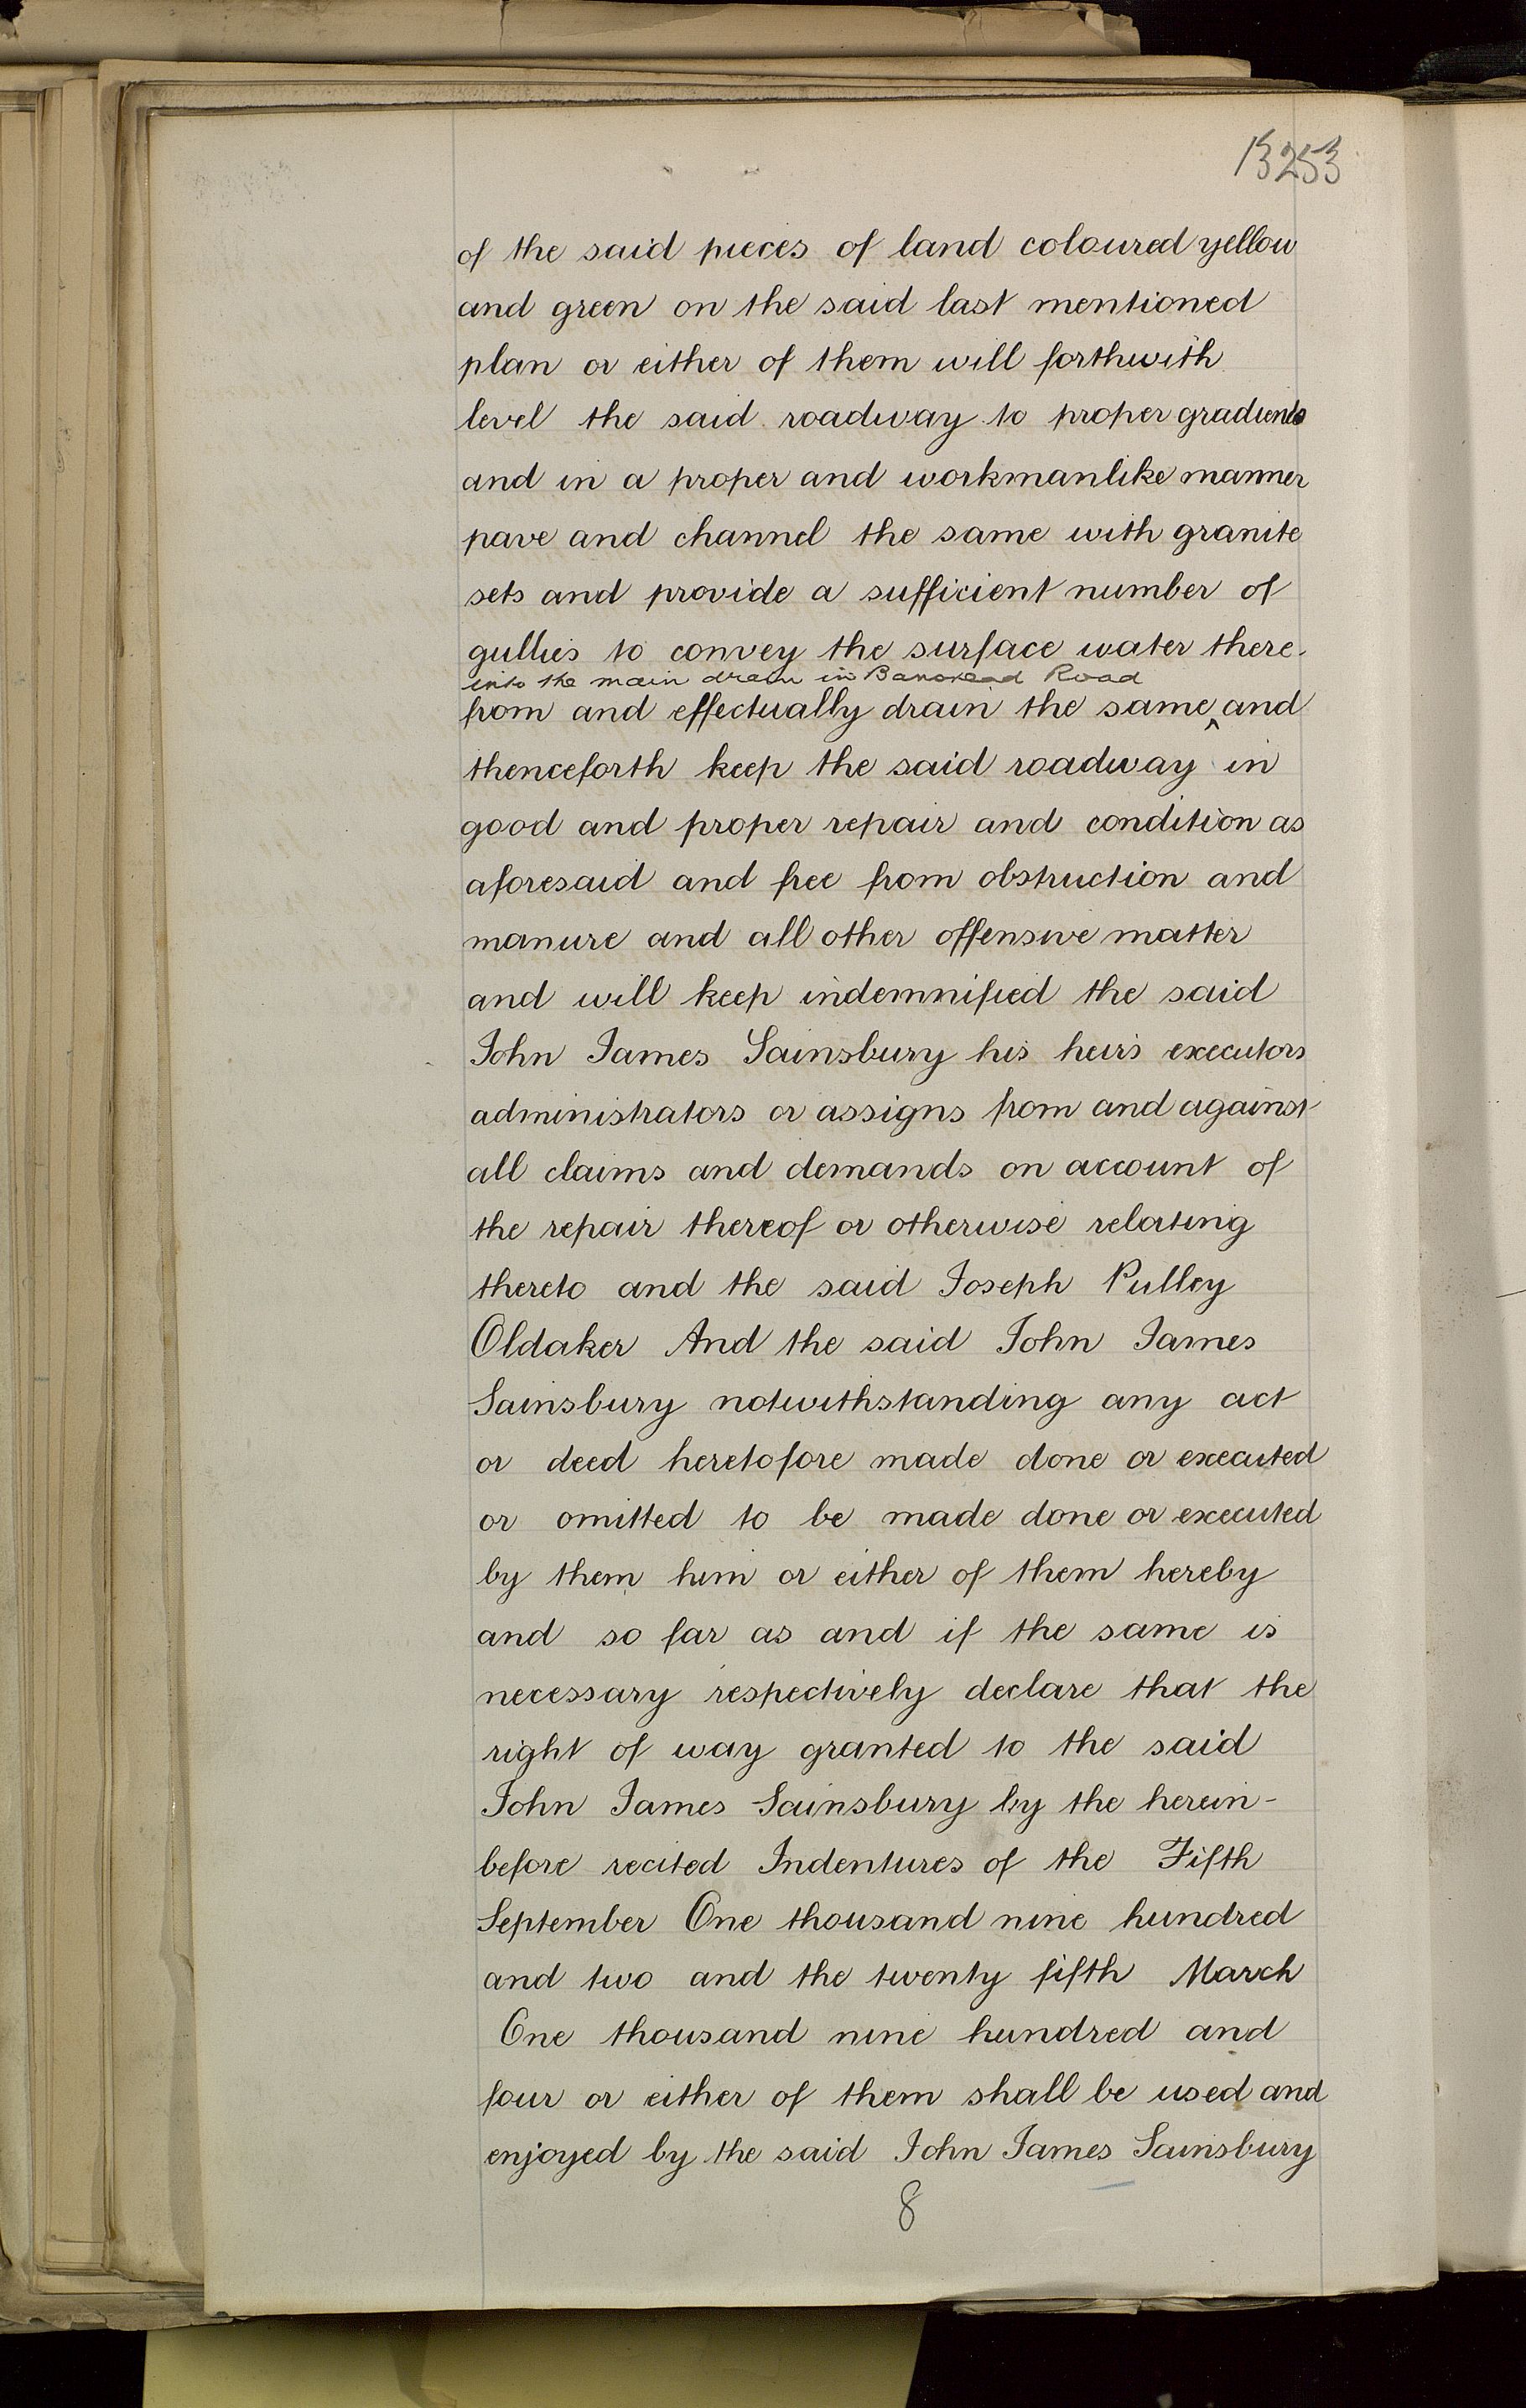 13253
of the said pieces of land coloured yellow
and green on the said last mentioned
plan or either of them will forthwith
level the said roadway to proper gradients
and in a proper and workmanlike manner
pave and channel the same with granite
sets and provide a sufficient number of
gullies to convey the surface water there-
into the main drain in Banstead Road
from and effectually drain the same ^ and
thenceforth keep the said roadway in
good and proper repair and condition as
aforesaid and free from obstruction and
manure and all other offensive matter
and will keep indemnified the said
John James Sainsbury his heirs executors
administrators or assigns from and against
all claims and demands on account of
the repair thereof or otherwise relating
thereto and the said Joseph Pulley
Oldaker And the said John James
Sainsbury notwithstanding any act
or deed heretofore made done or executed
or omitted to be made done or executed
by them him or either of them hereby
and so far as and if the same is
necessary respectively declare that the
right of way granted to the said
John James Sainsbury by the herein-
before recited Indentures of the Fifth
September One thousand nine hundred
and two and the twenty fifth March
One thousand nine hundred and
four or either of them shall be used and
enjoyed by the said John James Sainsbury
8